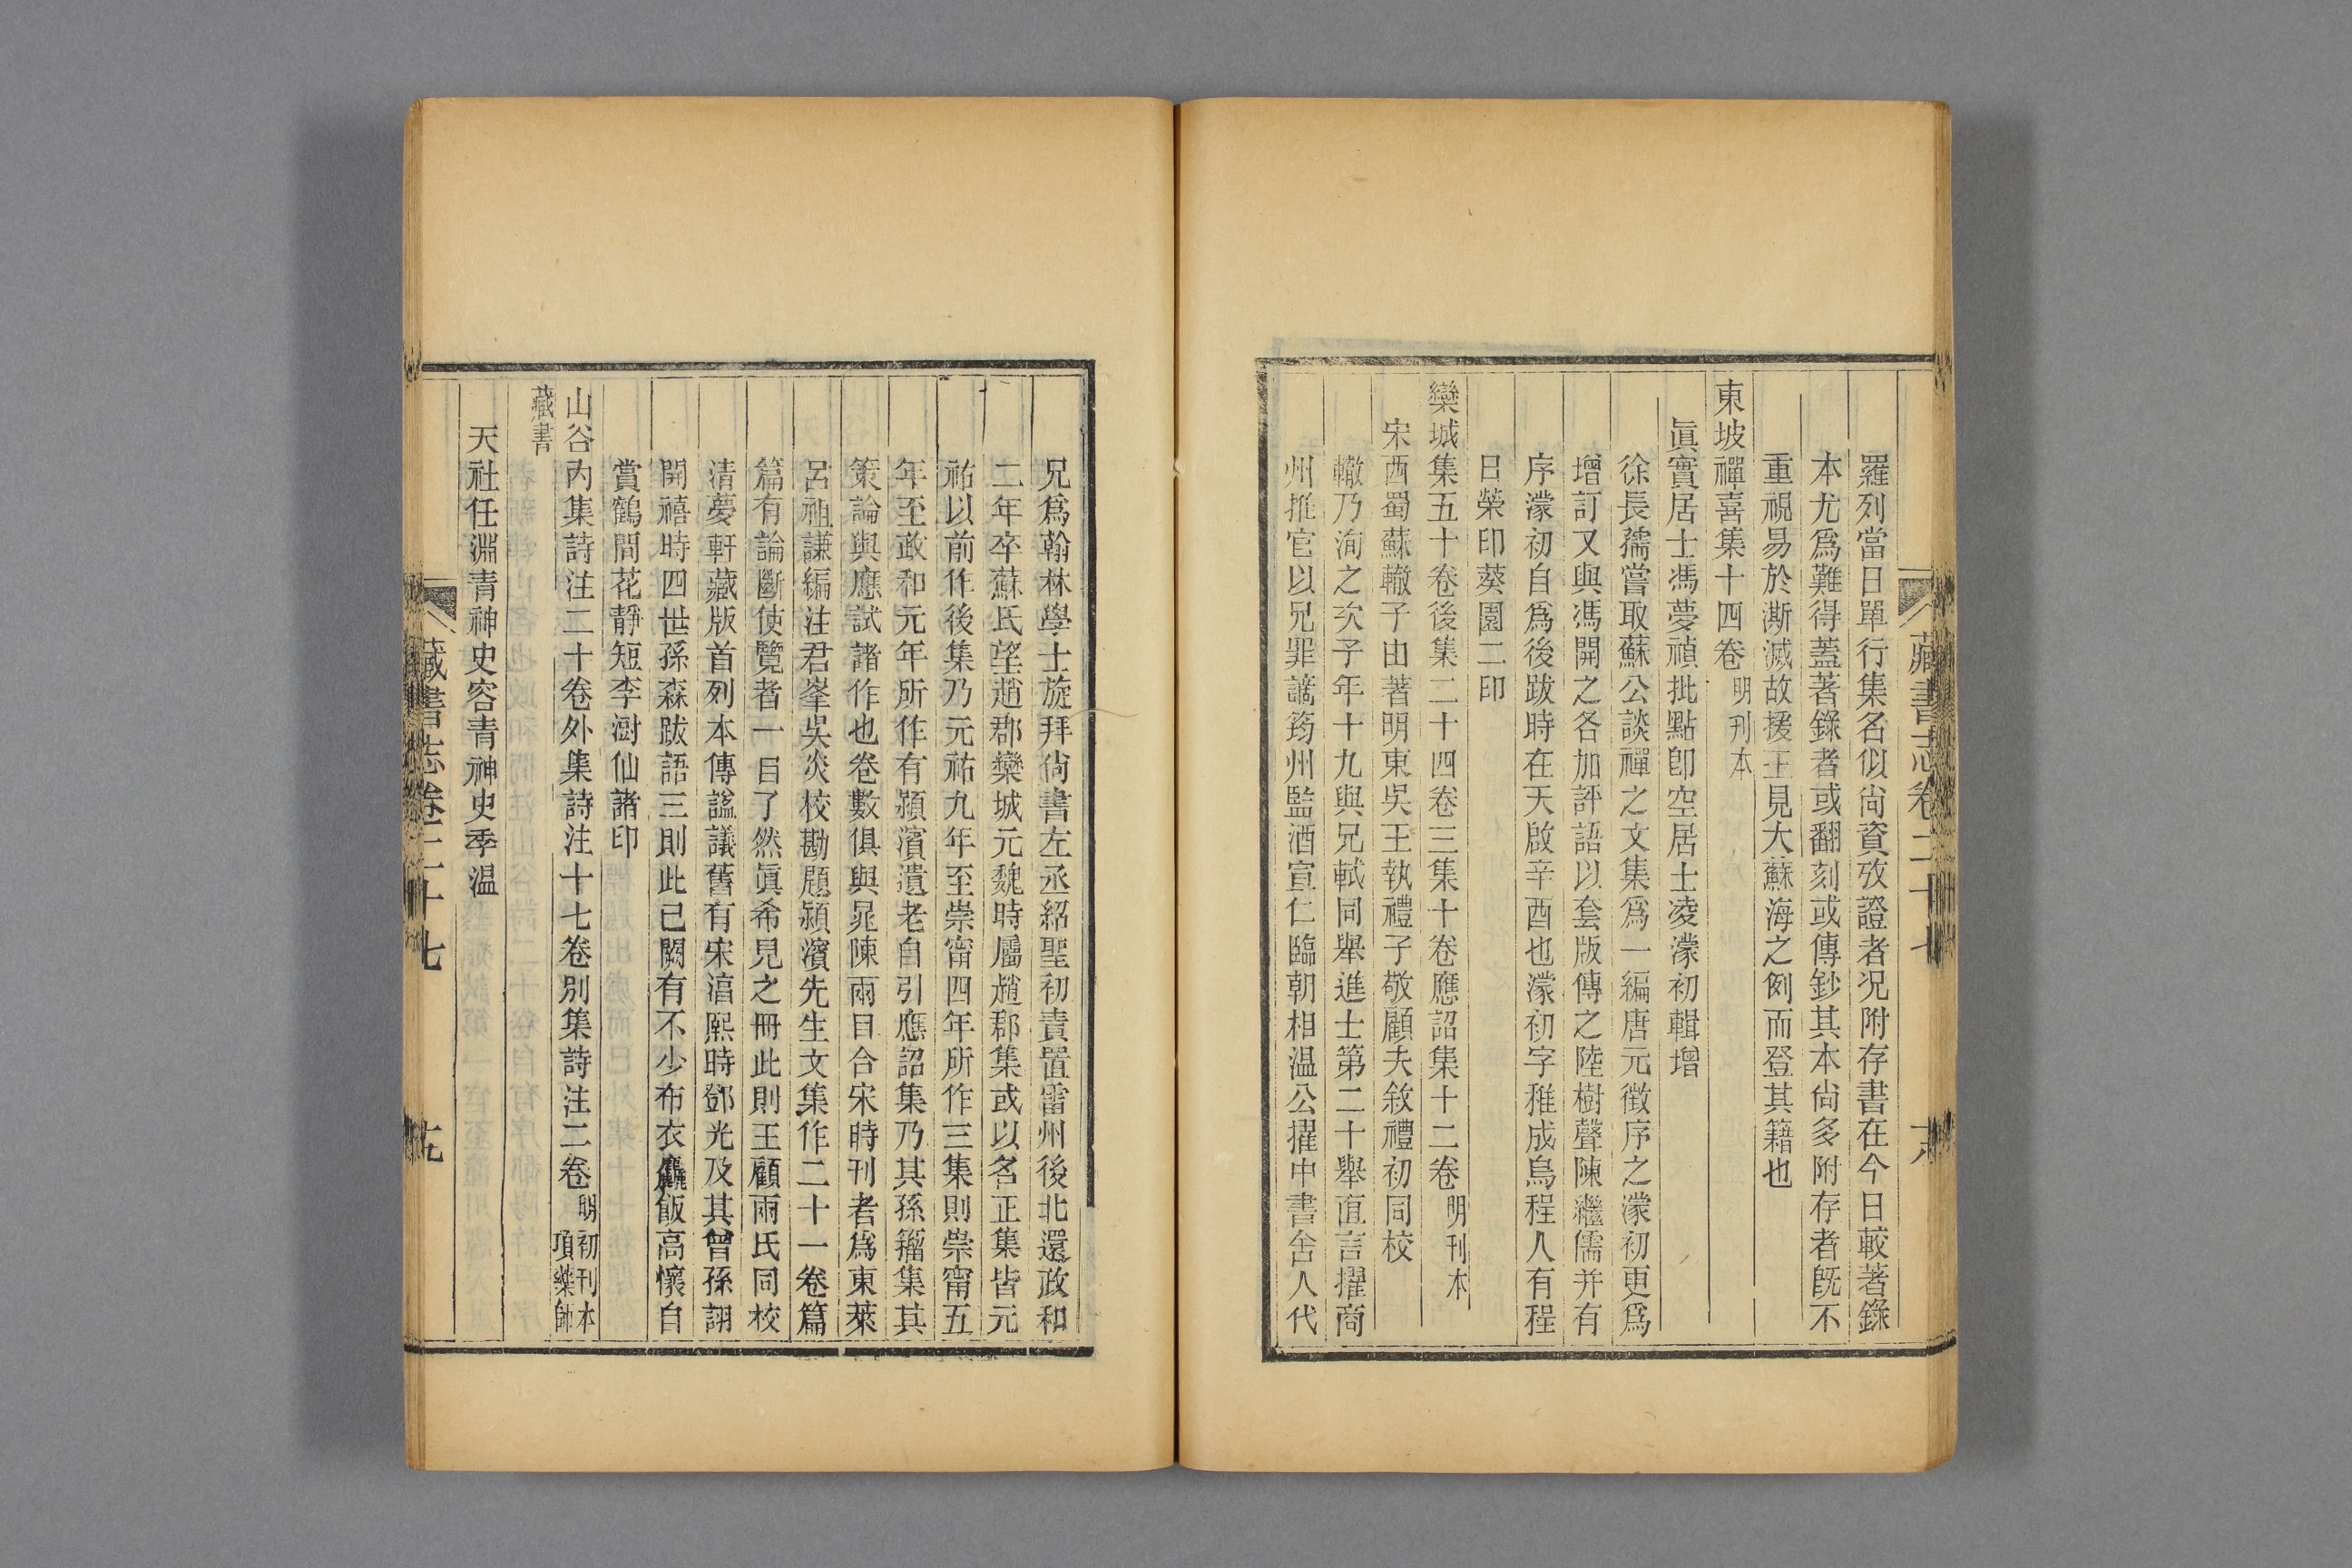 藏書志卷二十七
十八
羅列當日單行集名似尙資攷證者况附存書在今日較著錄
本尤爲難得蓋著錄者或翻刻或傳鈔其本尙多附存者旣不
重視易於澌滅故援王見大蘇海之例而登其籍也
東坡禪喜集十四卷 明刊本
眞實居士馮夢禎批點卽空居士凌濛初輯增
徐長孺嘗取蘇公談禪之文集爲一編唐元徵序之濛初更爲
增訂又與馮開之各加評語以套版傳之陸樹聲陳繼儒并有
序濛初自爲後跋時在天啟辛酉也濛初字稚成烏程人有程
日榮印葵園二印
欒城集五十卷後集二十四卷三集十卷應詔集十二卷 明刊本
宋西蜀蘇轍子由著明東吳王執禮子敬顧夫敘禮初同校
轍乃洵之次子年十九與兄軾同舉進士第二十舉直言擢商
州推官以兄罪謫筠州監酒宣仁臨朝相温公擢中書舍人代
兄爲翰林學士旋拜尙書左丞紹聖初責置雷州後北還政和
二年卒蘇氏望趙郡欒城元魏時屬趙郡集或以名正集皆元
祐以前作後集乃元祐九年至崇甯四年所作三集則崇甯五
年至政和元年所作有潁濱遺老自引應詔集乃其孫籀集其
策論與應試諸作也卷數俱與晁陳兩目合宋時刊者爲東萊
呂祖謙編注君峯吳炎校勘題潁濱先生文集作二十一卷篇
篇有論斷使覽者一目了然眞希見之冊此則王顧兩氏同校
清夢軒藏版首列本傳謚議舊有宋淳熙時鄧光及其曾孫詡
開禧時四世孫森跋語三則此已闕有不少布衣麤飯高懷自
賞鶴間花靜短李澍仙諸印
山谷內集詩注二十卷外集詩注十七卷別集詩注二卷 明初刊本 項藥師
藏書
天社任淵青神史容青神史季温
藏書志卷二十七
十九